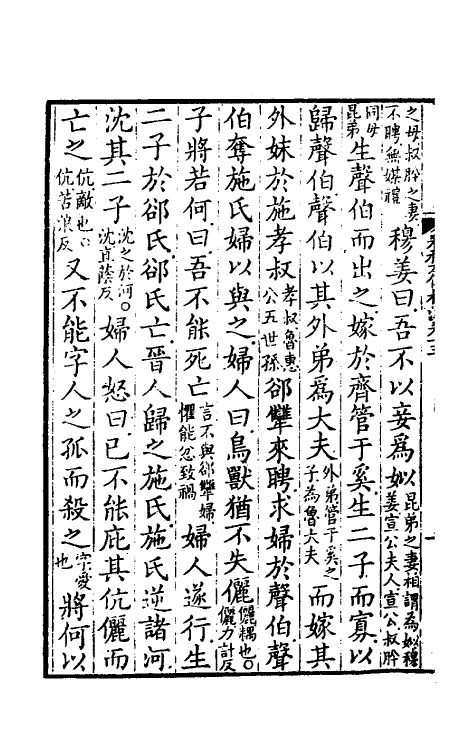 之母叔肸之妻不聘無媒禮穆姜曰吾不以妾為姒昆弟之妻相謂為姒穆姜宣公夫人宣公叔肸
同母昆弟生聲伯而出之嫁於齊管于奚生二子而寡以
歸聲伯聲伯以其外弟爲大夫外弟管于奚之子為魯大夫而嫁其
外妹於施孝叔孝叔魯惠公五世孫郤犨來聘求婦於聲伯聲
伯奪施氏婦以與之婦人曰鳥獸猶不失儷儷耦也○儷力計反
子將若何曰吾不能死亡言不與郤犨婦懼能忿致禍婦人遂行生
二子於郤氏郤氏亡晉人歸之施氏施氏逆諸河
沈其二子沈之於河○沈直蔭反婦人怒曰已不能庇其伉儷而
亡之伉敵也○伉苦浪反又不能字人之孤而殺之字愛也將何以